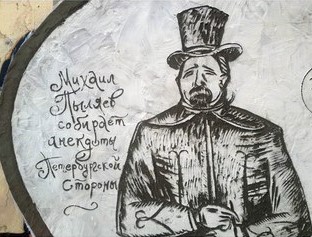 Михаил
Пыляев
собирает
анекдоты
Петербургской
Стороны